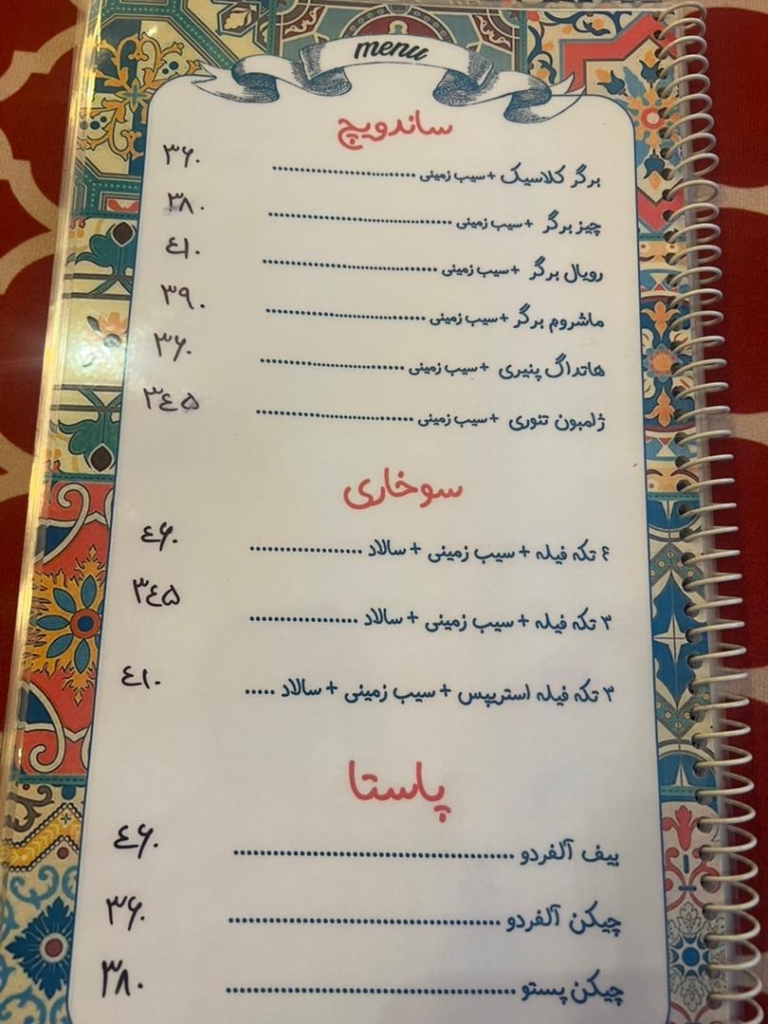 menu
ساندویچ
برگر کلاسیک + سیب زمینی ........................ ۳۶۰
چیز برگر + سیب زمینی ........................ ۳۸۰
رویال برگر + سیب زمینی ........................ ٤۱۰
ماشروم برگر + سیب زمینی ........................ ۳۹۰
هاتداگ پنیری + سیب زمینی ........................ ۳۶۰
ژامبون تنوری + سیب زمینی ........................ ۳٤۵
سوخاری
٤ تکه فیله + سیب زمینی + سالاد ................... ٤۶۰
۳ تکه فیله + سیب زمینی + سالاد .................. ۳٤۵
۳ تکه فیله استریپس + سیب زمینی + سالاد ..... ٤۱۰
پاستا
بیف آلفردو ................................................ ٤۶۰
چیکن آلفردو .............................................. ۳۶۰
چیکن پستو ................................................. ۳۸۰